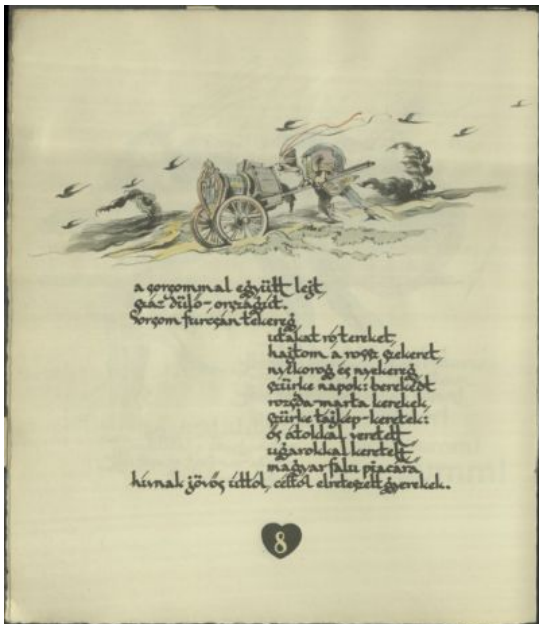 a sorsommal együtt lejt,
gaz dülő-országút.
Sorsom furcsán tekereg
utakat ró tereket,
hajtom a rossz szekeret,
nyikorog és nyekereg
szürke napok: berekedt
rozsda-marta kerekek,
szürke tájkép-keretek:
ős átokkal veretett
ugarokkal keretelt
magyar falu piacára
hívnak jövős úttól, céltól elreteszelt gyerekek.
8